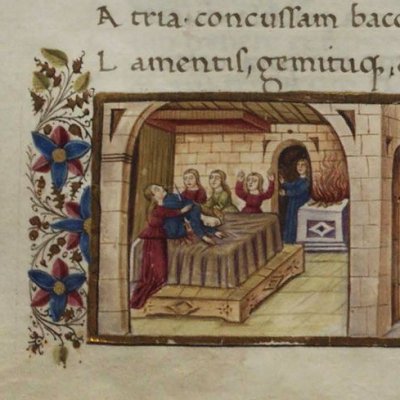 A tria·concussam bacc
L amentis, gemituq;,